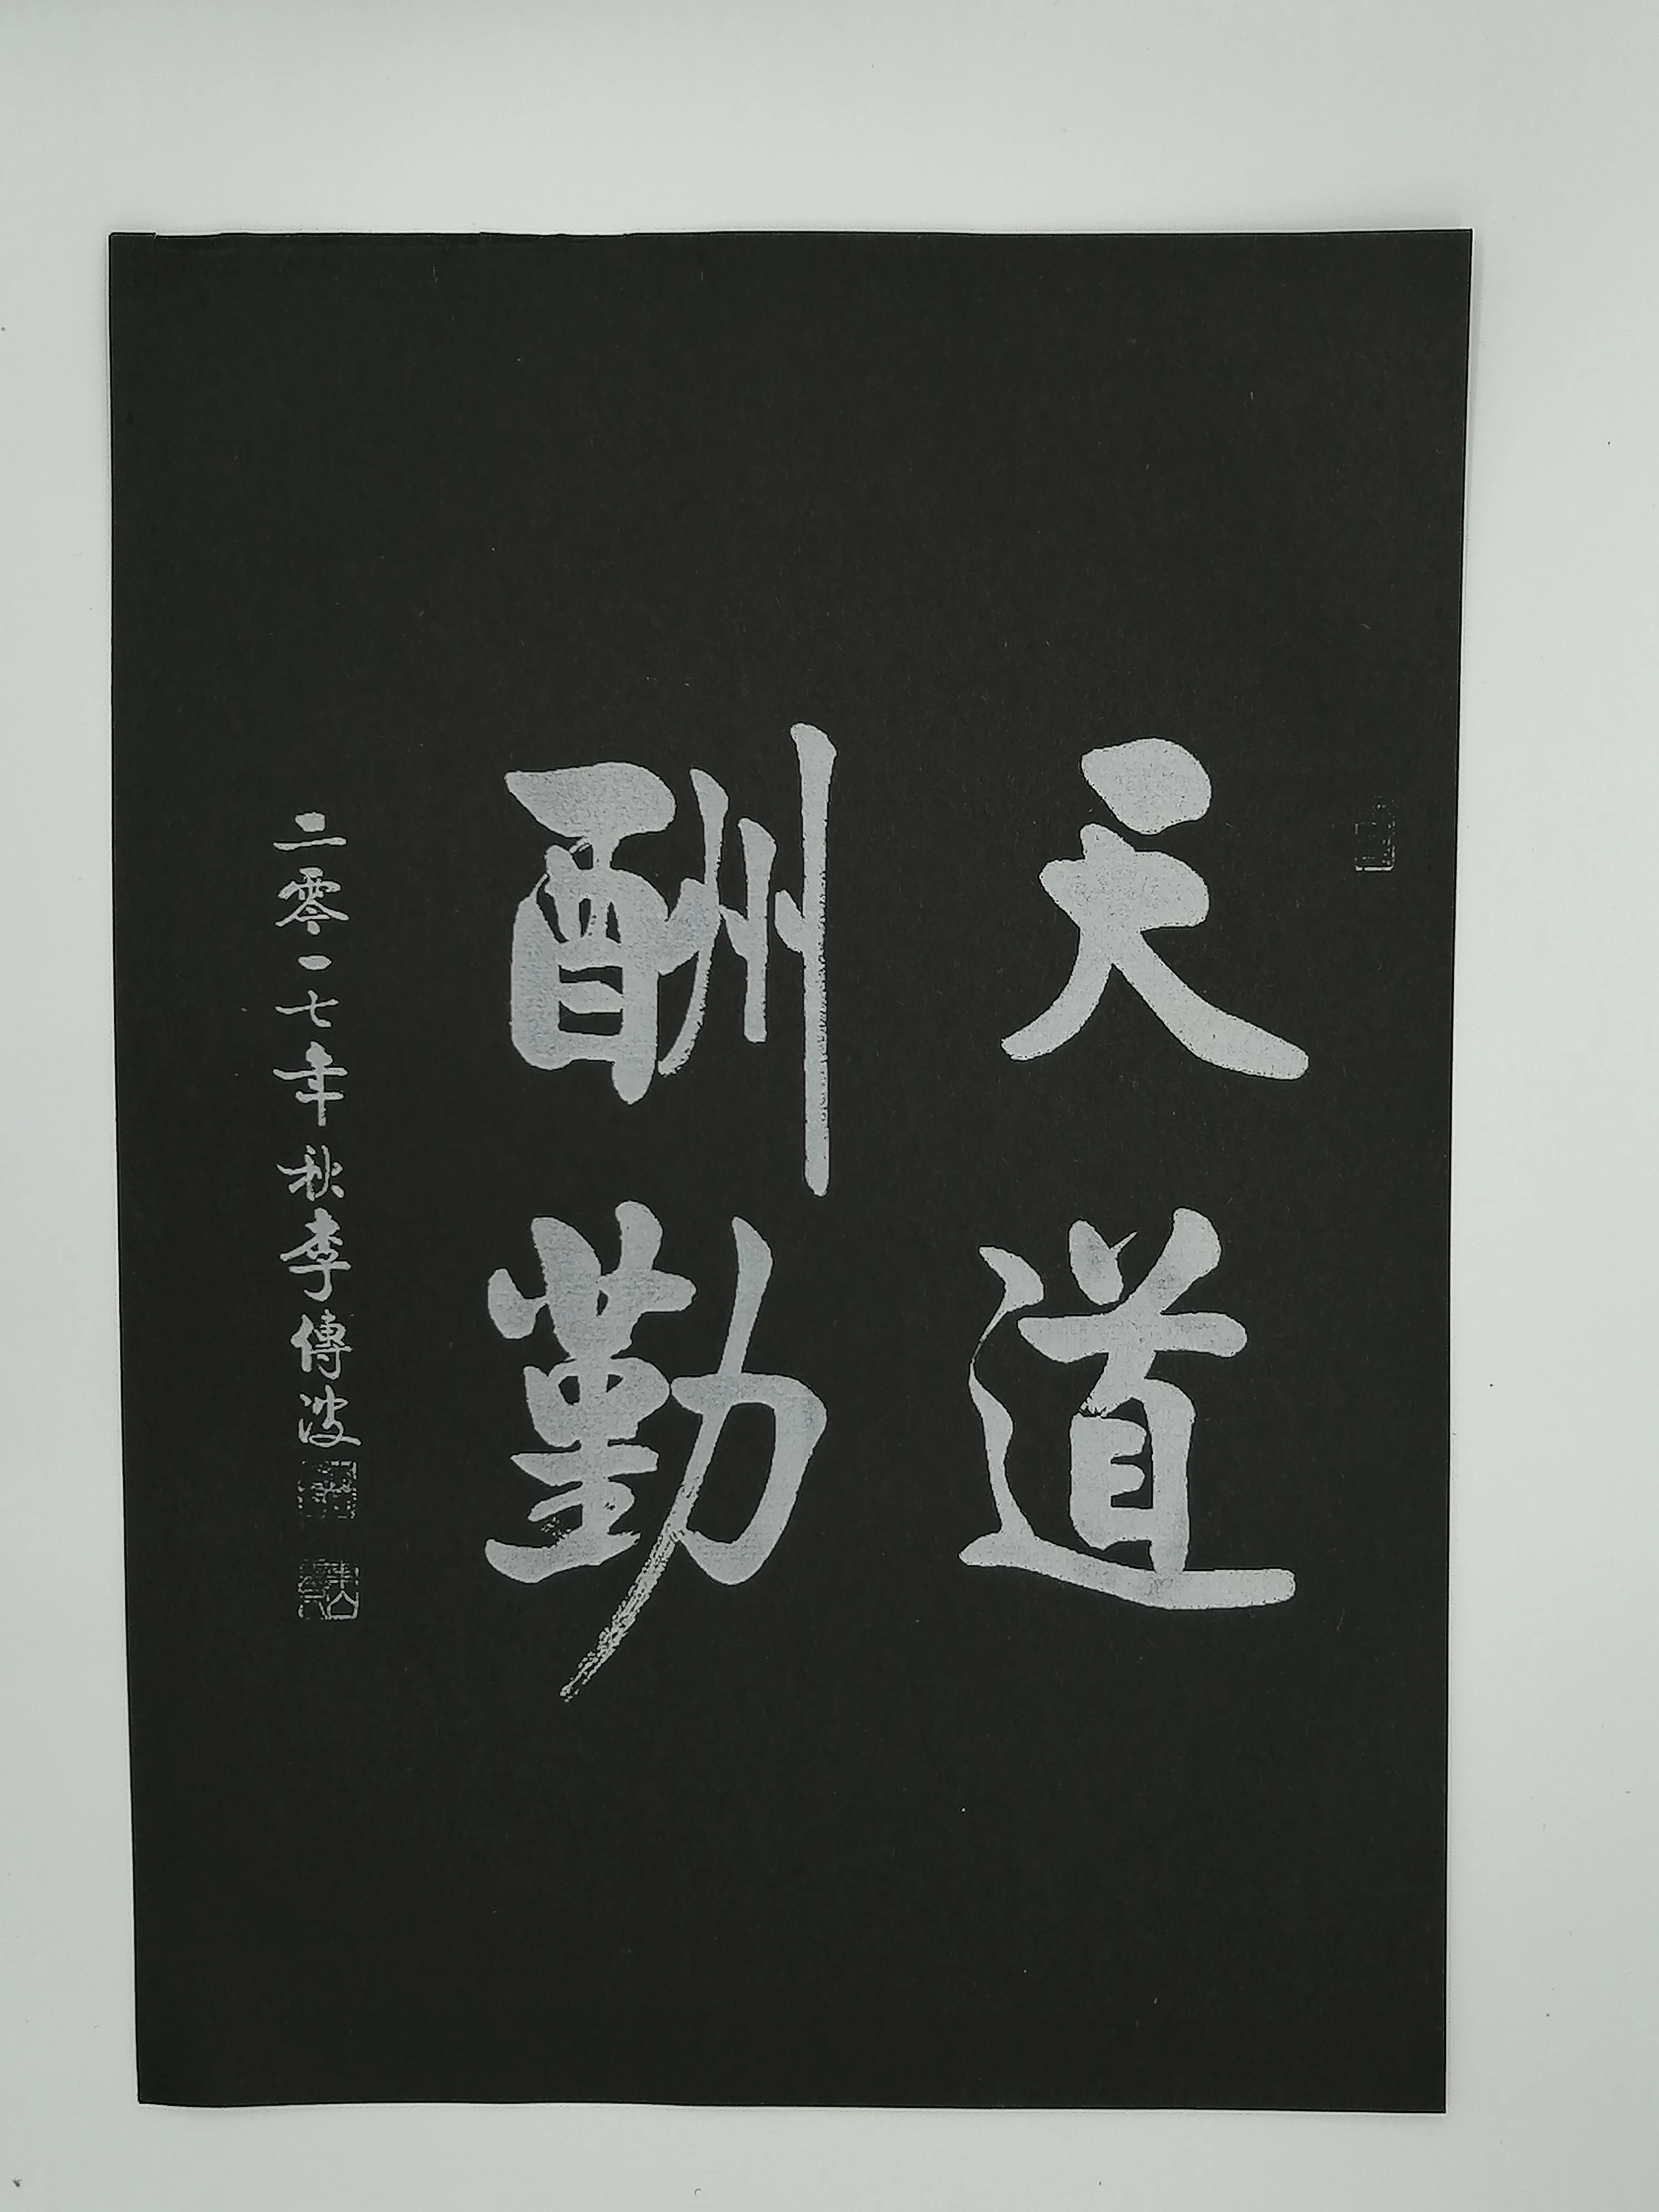 天道
酬勤
二零一七年秋李傳波